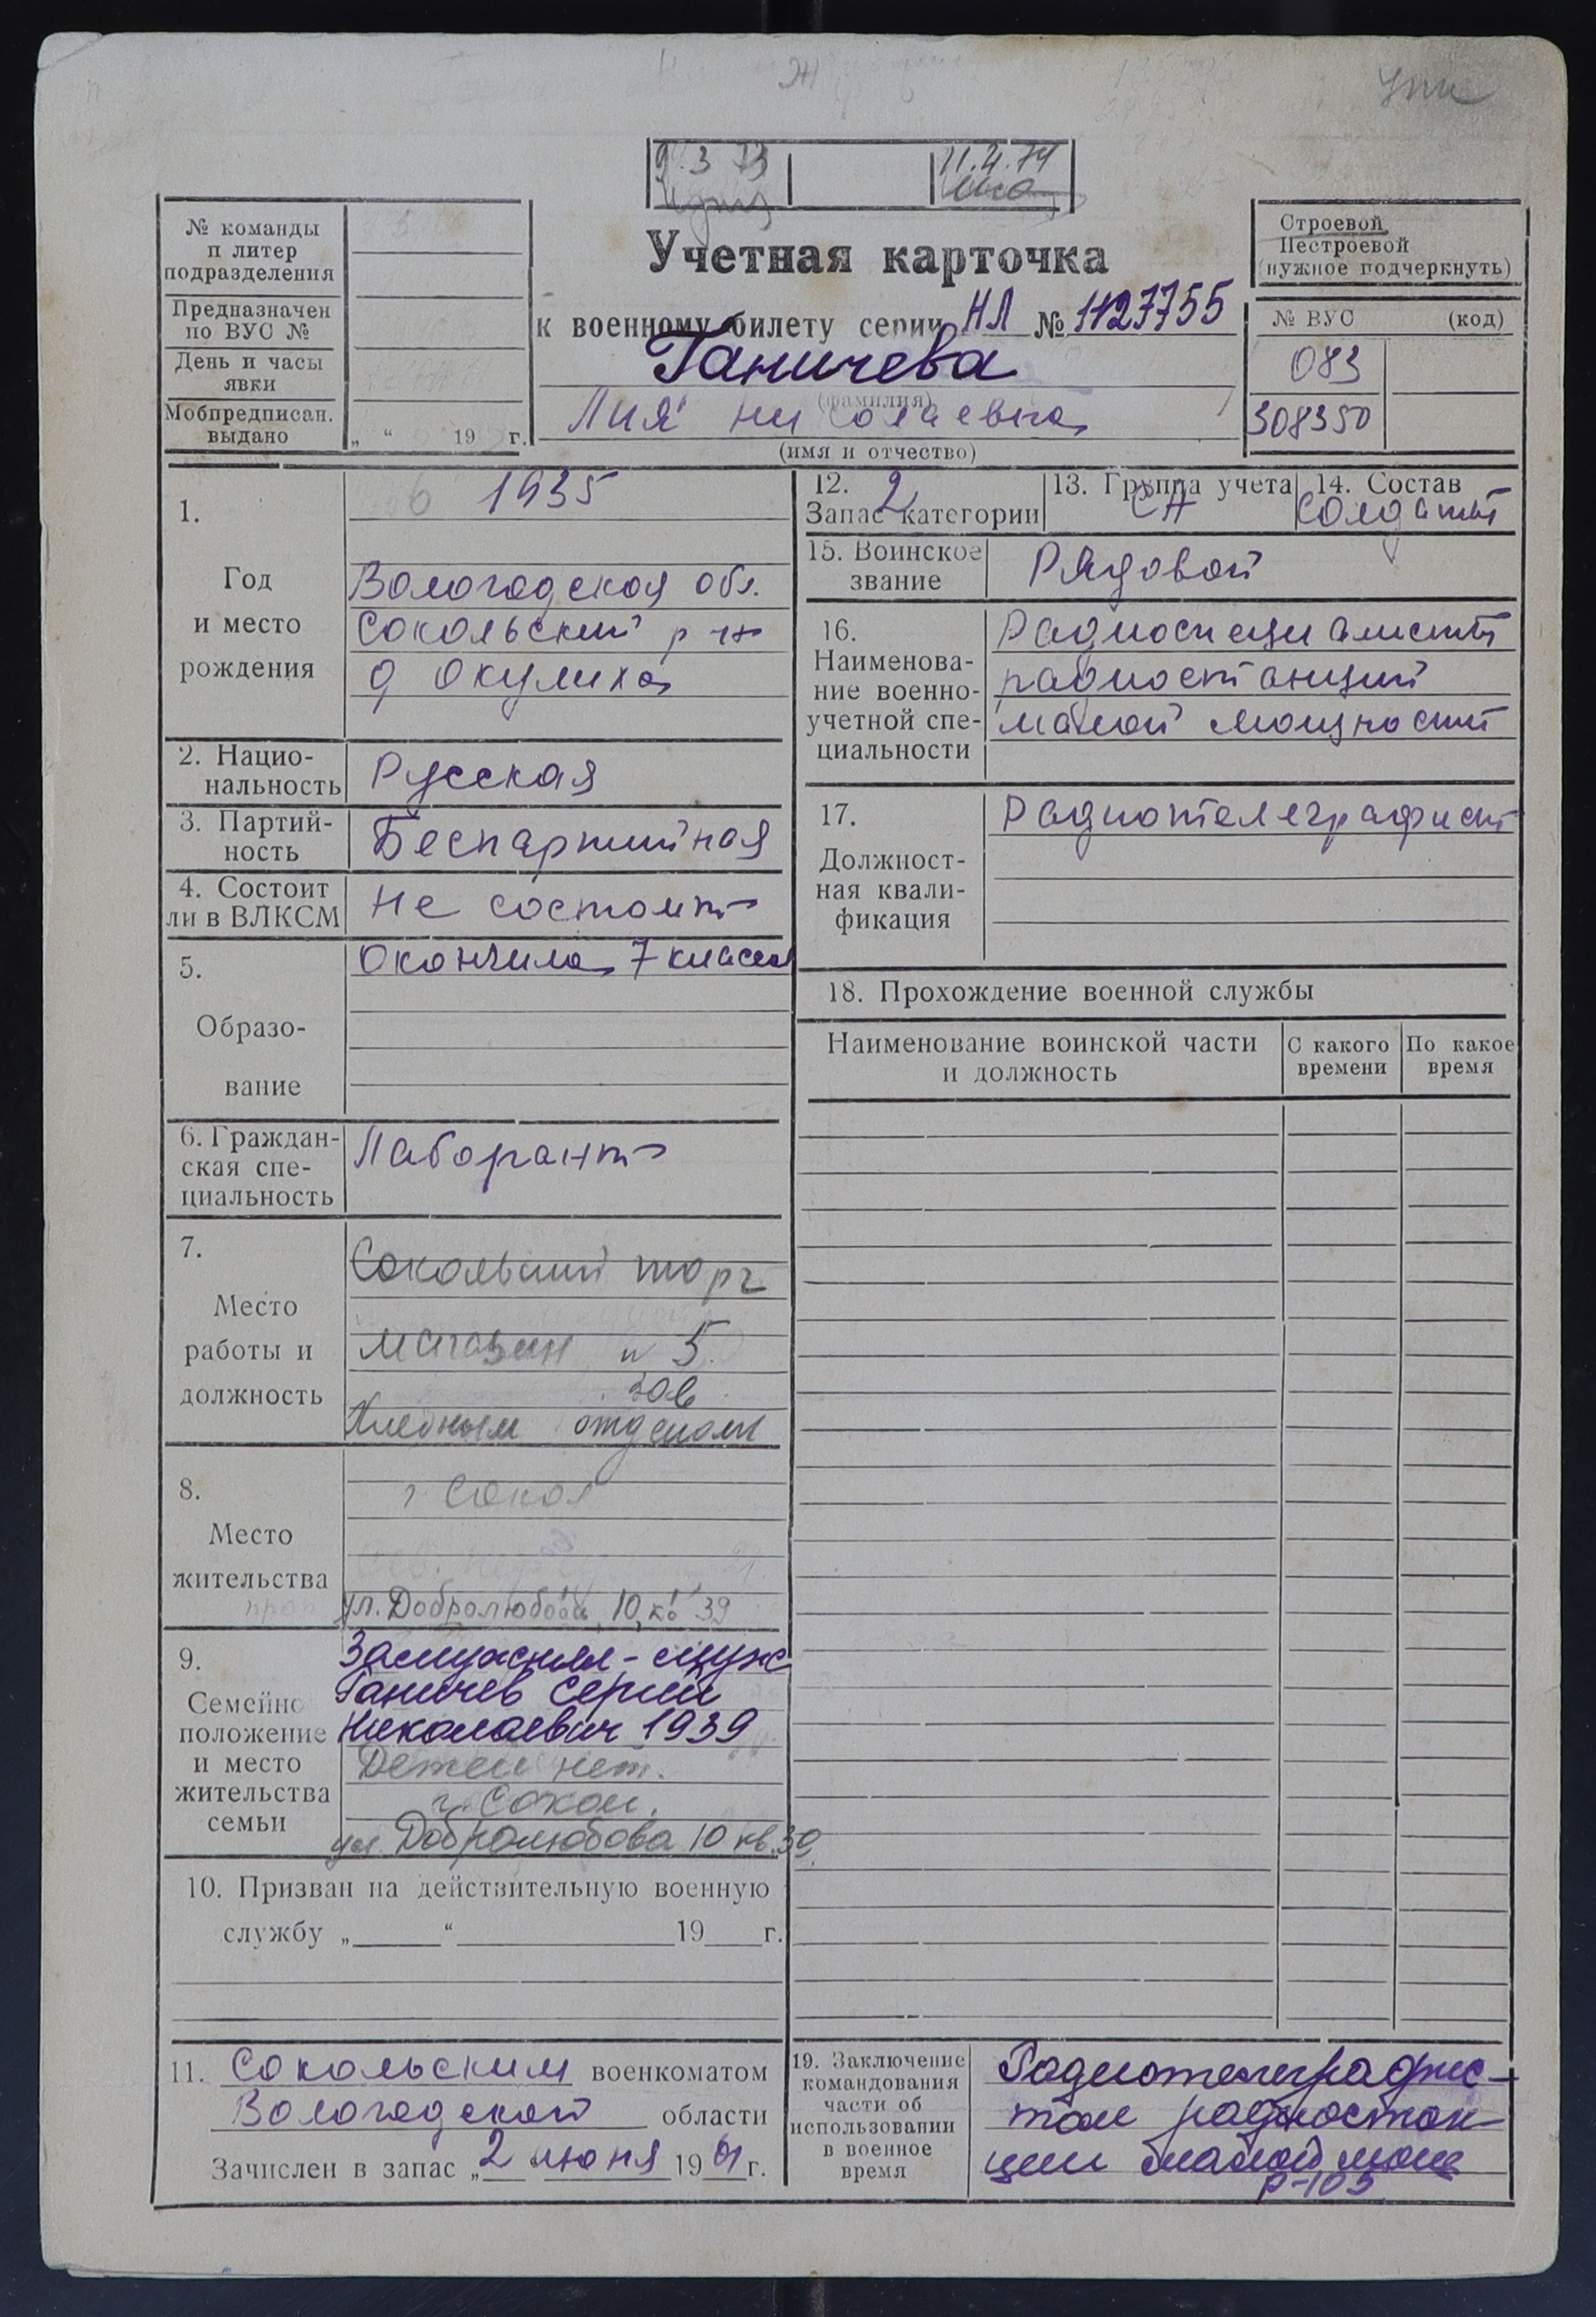 9.3 73
11.4.74
№ команды
п литер
подразделения
Предназначен
по ВУС №
День и часы
явки
Мобпредписан.
выдано
„ “ 19 г.
Учетная карточка
к военному билету серии НЛ № 1127755
Ганичева
(фамилия)
Лия Николаевна
(имя и отчество)
Строевой
Нестроевой
(нужное подчеркнуть)
№ ВУС (код)
083
308350
1.
Год
и место
рождения
1935
Вологодская обл.
Сокольский р-н
д Окулиха
2. Нацио-
нальность
Русская
3. Партий-
ность
Беспартийная
4. Состоит
ли в ВЛКСМ
Не состоит
5.
Образо-
вание
Окончила 7 классов
6. Граждан-
ская спе-
циальность
Лаборант
7.
Место
работы и
должность
Сокольский торг
магазин н 5
зав
Хлебным отделом
8.
Место
жительства
г. Сокол
ул. Добролюбова, 10, кв 39
9.
Семейно
положение
и место
жительства
семьи
Замужняя - муж
Ганичев Сергей
Николаевич 1939
Детей нет.
г. Сокол.
ул. Добролюбова 10 кв. 39.
10. Призван на действительную военную
службу „ “ 19 г.
11. Сокольским военкоматом
Вологодской области
Зачислен в запас „2 июня 1961 г.
12. 2
Запас категории
13. Группа учета
СА
14. Состав
солдаты
15. Воинское
звание
Рядовой
16.
Наименова-
ние военно-
учетной спе-
циальности
Радиоспециалисты
радиостанций
малой мощности
17.
Должност-
ная квали-
фикация
Радиотелеграфист
18. Прохождение военной службы
Наименование воинской части
и должность
С какого
времени
По какое
время
19. Заключение
командования
части об
использовании
в военное
время
Радиотелеграфис-
том радиостан-
ции малой мощ
Р-105